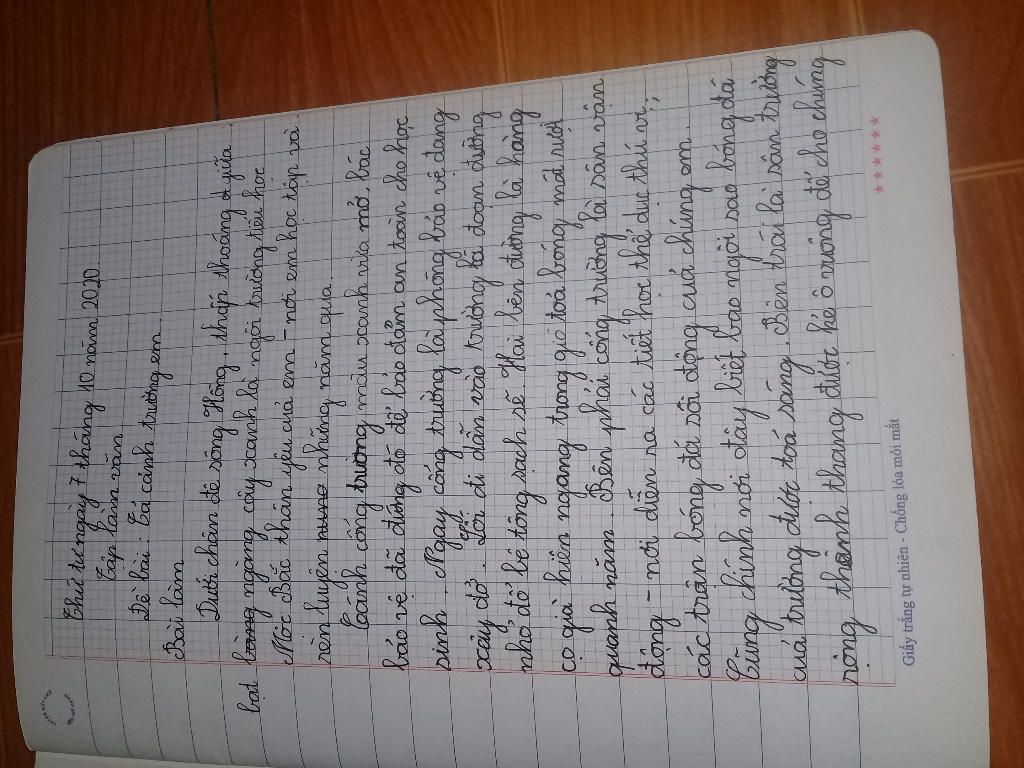 Thứ tư ngày 7 tháng 10 năm 2020
Tập làm văn
Đề bài: Tả cảnh trường em.
Bài làm
Dưới chân đê sông Hồng, thấp thoáng giữa
bạt ngàng cây xanh là ngôi trường tiểu học
Nóc Bắc thân yêu của em - nơi em học tập và
rèn luyện những năm qua.
Cánh cổng trường màu xanh vừa mở, bác
bảo vệ đã đứng đó để bảo đảm an toàn cho học
sinh. Ngay cổng trường là phòng bảo vệ đang
xây dở. Lối đi dẫn vào trường là đoạn đường
nhỏ, đổ bê tông sạch sẽ. Hai bên đường là hàng
cọ già hiên ngang trong gió toả bóng mát rượi
quanh năm. Bên phải cổng trường là sân vận
động - nơi diễn ra các tiết học thể dục thú vị,
các trận bóng đá sôi động của chúng em.
Cũng chính nơi đây biết bao ngôi sao bóng đá
của trường được toả sáng. Bên trái là sân trường
rộng thênh thang được kẻ ô vuông để cho chúng
Giấy trắng tự nhiên - Chống lóa mỏi mắt